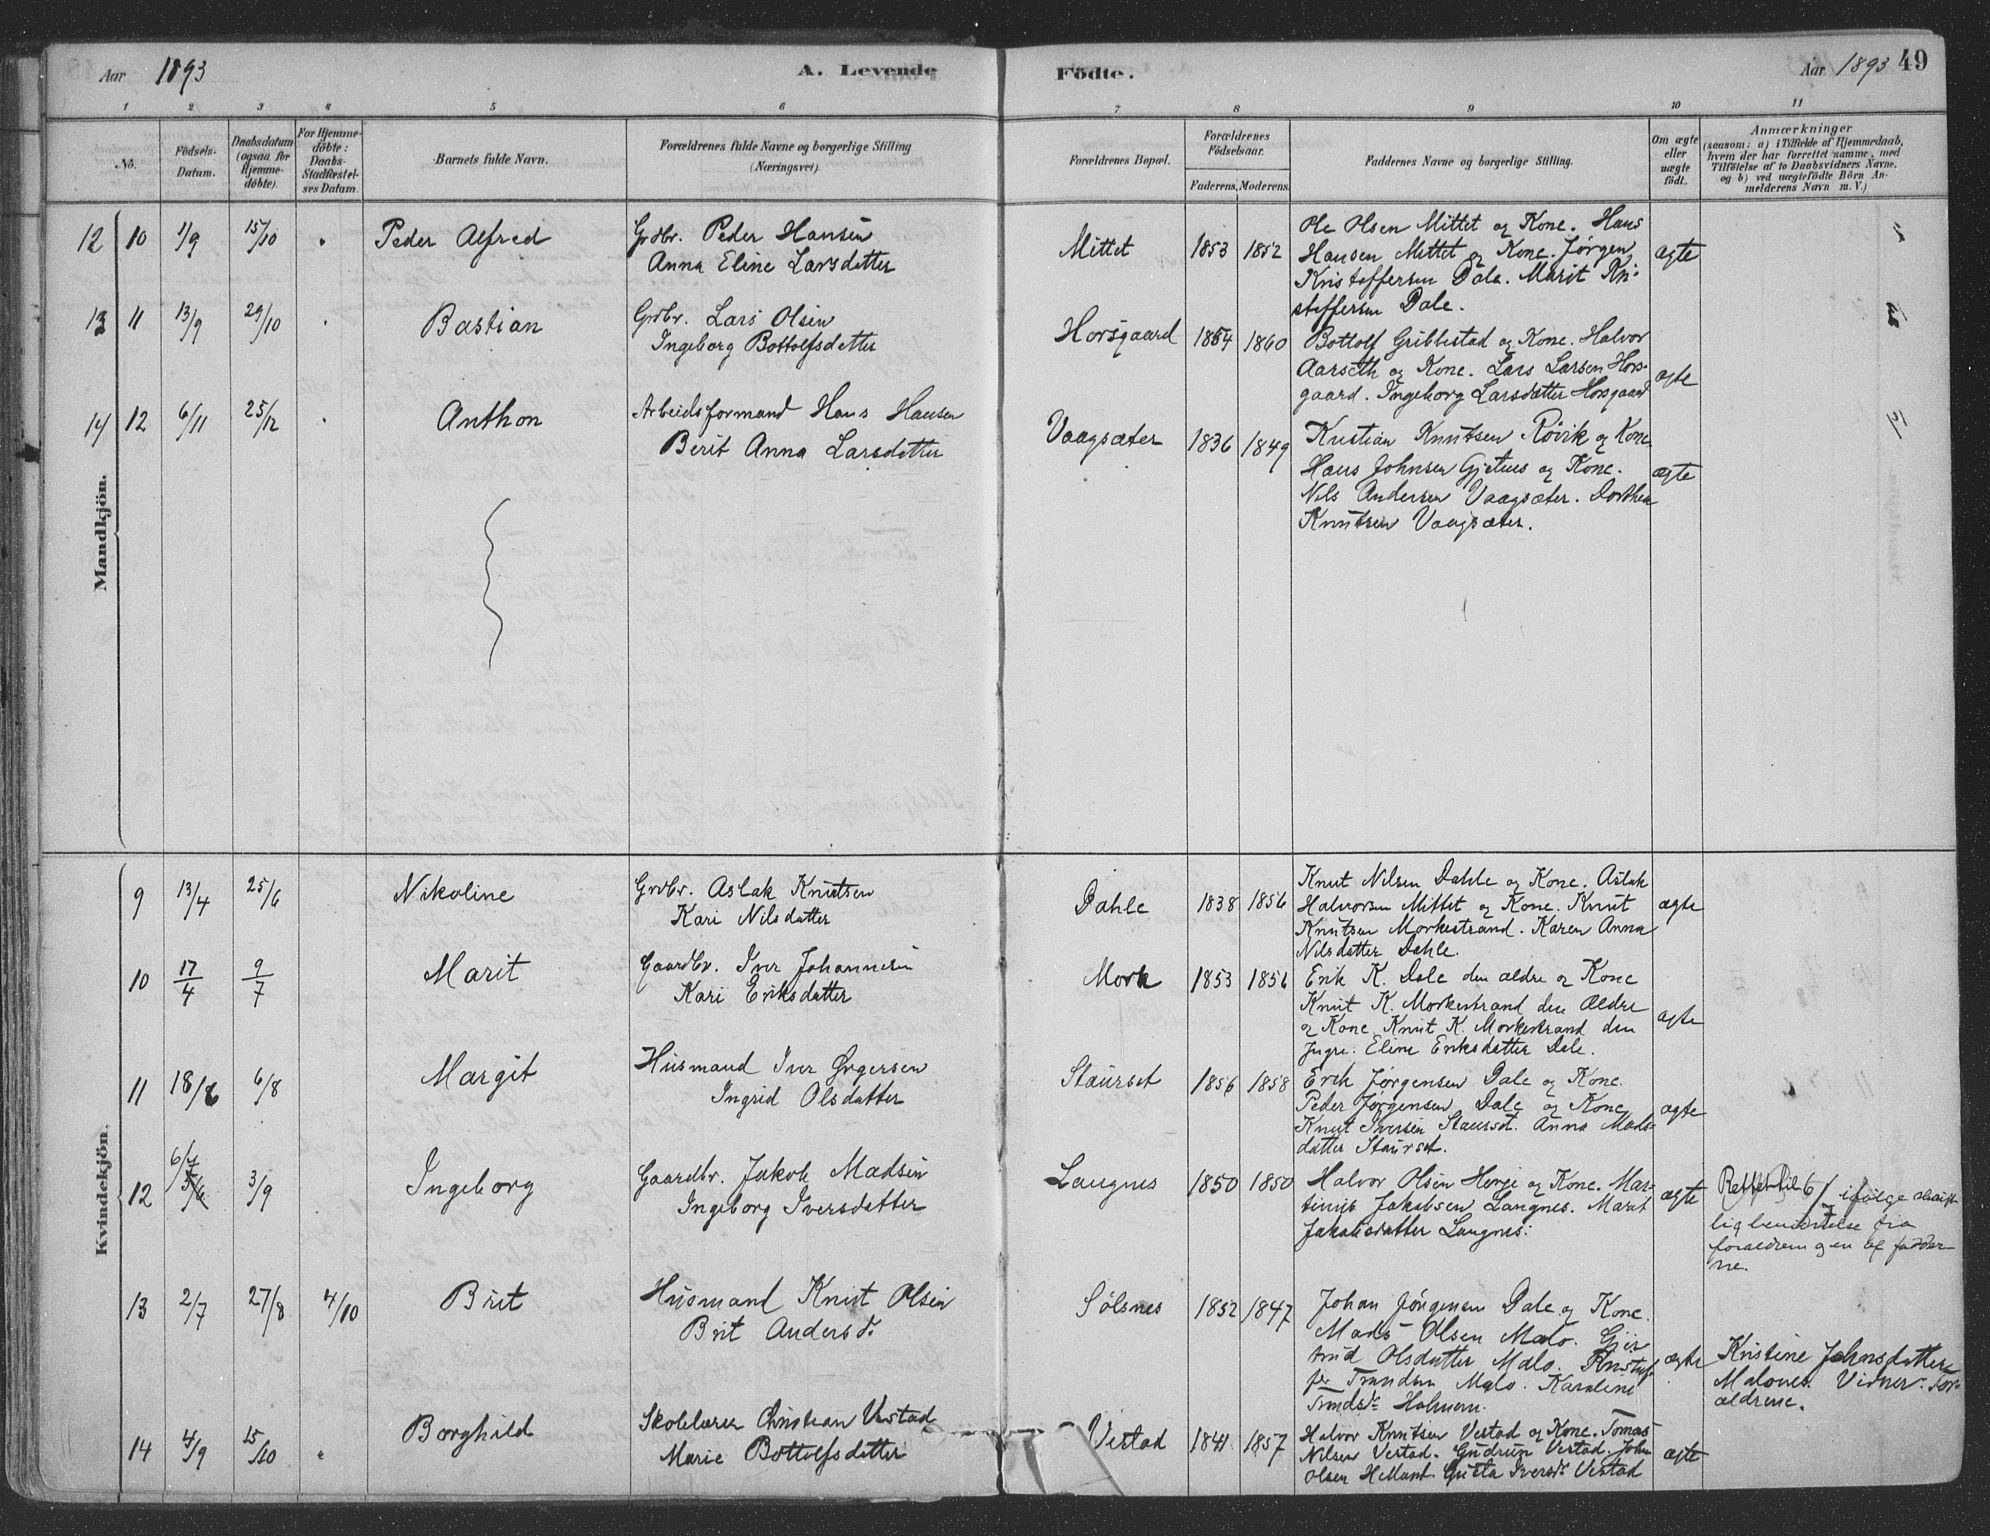 Aar 1893 A. Levende Födte. Aar 1893 49
1 2 3 4 5 6 7 8 9 10 11
No.
Födsels-
Datum.
Daabsdatum
(ogsaa for
Hjemme-
döbte).
For Hjemme-
döbte:
Daabs-
Stadfæstel-
ses Datum.
Barnets fulde Navn.
Forældrenes fulde Navne og borgerlige Stilling
(Næringsvei).
Forældrenes Bopæl.
Forældrenes
Födselsaar.
Faderens. Moderens.
Faddernes Navne og borgerlige Stilling.
Om ægte
eller
uægte
födt.
Anmærkninger
(saasom: a) i Tilfælde af Hjemmedaab,
hvem der har forrettet samme, med
Tilföielse af to Daabsvidners Navne.
og b) ved uægtefödte Börn An-
melderens Navn m. V.)
Mandkjön.
12 10 1/9 15/10 Peder Alfred
Grdbr. Peder Hansen
Anna Eline Larsdatter
Mittet 1853 1852
Ole Olsen Mittet og Kone. Hans
Hansen Mittet og Kone. Jørgen
Kristoffersen Dale. Marit Kri-
stoffersen Dale.
ægte
13 11 13/9 29/10 Bastian
Grdbr. Lars Olsen
Ingeborg Bottolfsdatter
Horsgaard 1854 1860
Bottolf Gribbestad og Kone. Halvor
Aarseth og Kone. Lars Larsen Hors-
gaard. Ingeborg Larsdatter Horsgaard
ægte
14 12 6/11 25/12 Anthon
Arbeidsformand Hans Hansen
Berit Anna Larsdatter
Vaagsæter 1836 1849
Kristian Knutsen Røvik og Kone
Hans Johnsen Gjetnes og Kone.
Nils Andersen Vaagsæter. Dorthea
Knutsen Vaagsæter.
ægte
Kvindekjön.
9 13/4 25/6 Nikoline
Grdbr. Aslak Knutsen
Kari Nilsdatter
Dahle 1838 1856
Knut Nilsen Dahle og Kone. Aslak
Halvorsen Mittet og Kone. Knut
Knutsen Morkestrand. Karen Anna
Nilsdatter Dahle.
ægte
10 17/4 9/7 Marit
Gaardbr. Iver Johannesen
Kari Eriksdatter
Mork 1853 1856
Erik K. Dale den ældre og Kone
Knut K. Morkestrand den Ældre
og Kone. Knut K. Morkestrand den
Yngre. Eline Eriksdatter Dale.
ægte
11 18/6 6/8 Margit
Husmand Iver Ørgersen
Ingrid Olsdatter
Staurset 1856 1858
Erik Jørgensen Dale og Kone.
Peder Jørgensen Dale og Kone
Knut Iversen Staurset. Anna Mads-
datter Staurset.
ægte
12 6/7 3/9 Ingeborg
Gaardbr. Jakob Madsen
Ingeborg Iversdatter
Langnes 1850 1850
Halvor Olsen Herje og Kone. Mar-
tinus Jakobsen Langnes. Marit
Jakobsdatter Langnes.
ægte
Rettet til 6/7 ifølge skrift-
lig bevidnelse fra
forældrene og en af fadder-
ne.
13 2/7 27/8 4/10 Brit
Husmand Knut Olsen
Brit Andersd.
Sölsnes 1852 1847
Johan Jörgensen Dale og Kone.
Mads Olsen Malo. Gjer-
trud Olsdatter Malo. Kristof-
fer Trondsen Malo. Karoline
Trondsdr. Holmem.
ægte
Kristine Johnsdatter
Malones. Vidner: For-
ældrene.
14 4/9 15/10 Borghild
Skolelærer Christian Vestad
Marie Bottolfsdatter
Vestad 1841 1857
Halvor Knutsen Vestad og Kone. Tomas
Nilsen Vestad. Gudrun Vestad. John
Olsen Helland. Gusta Iversdr. Vestad
ægte